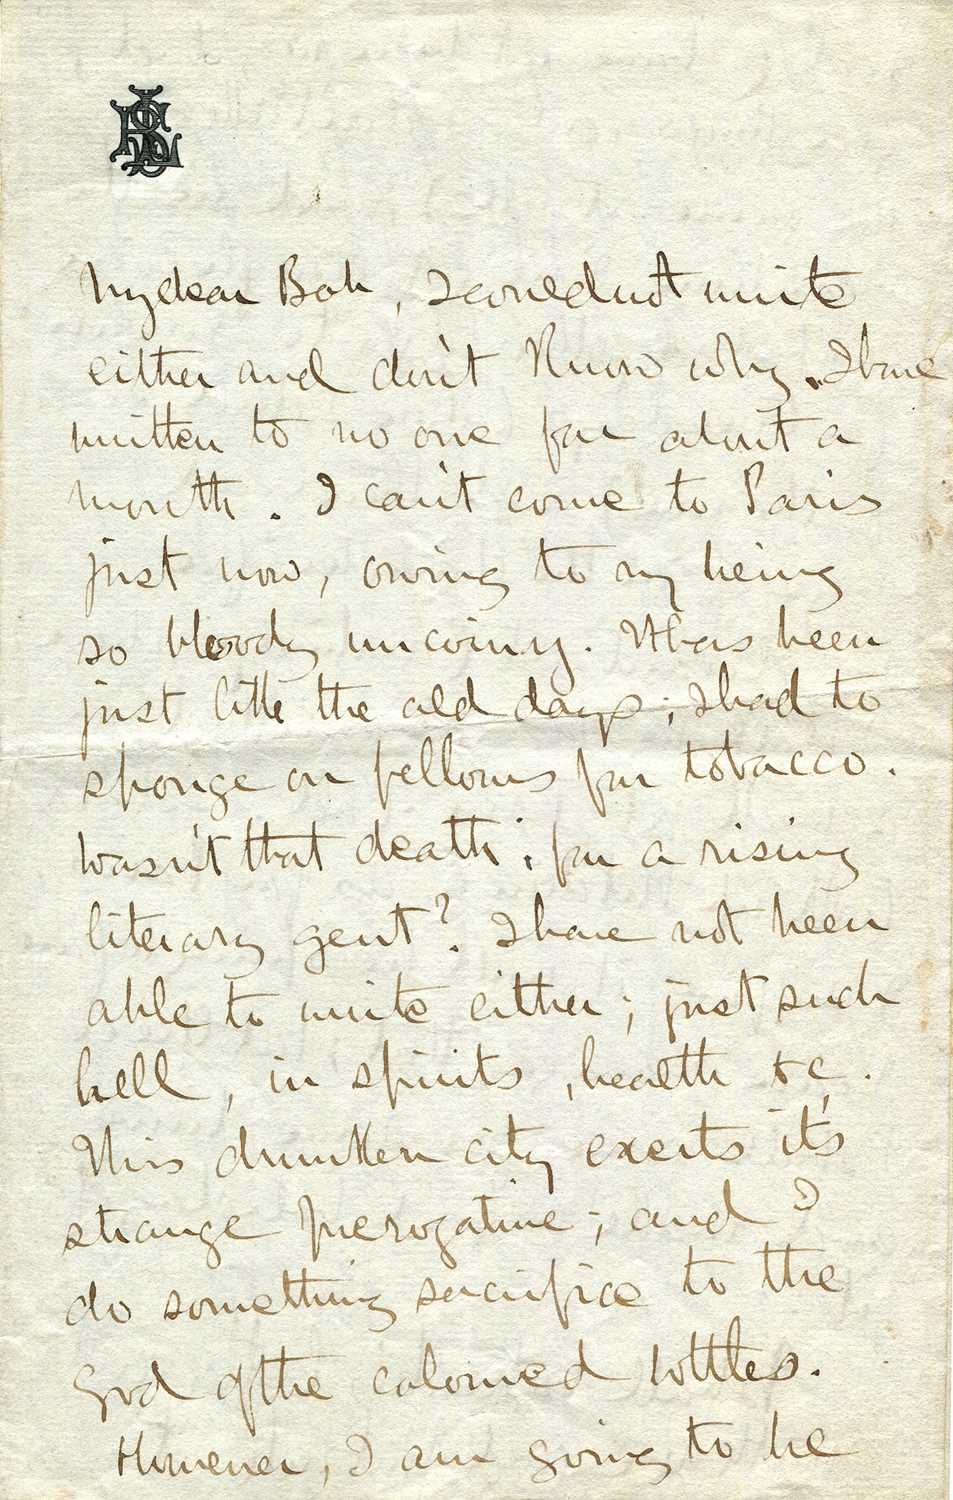 RLS
My dear Bob, I could not write
either and don't know why. I have
written to no one for about a
month. I can't come to Paris
just now, owing to my being
so bloody uncoiny. It has been
just like the old days; I had to
sponge on fellows for tobacco.
Wasn't that death; for a rising
literary gent? I have not been
able to write either; just such
hell, in spirits, health &c.
This drunken city exerts it's
strange prerogative; and I
do something sacrifice to the
God of the coloured bottles.
However, I am going to be